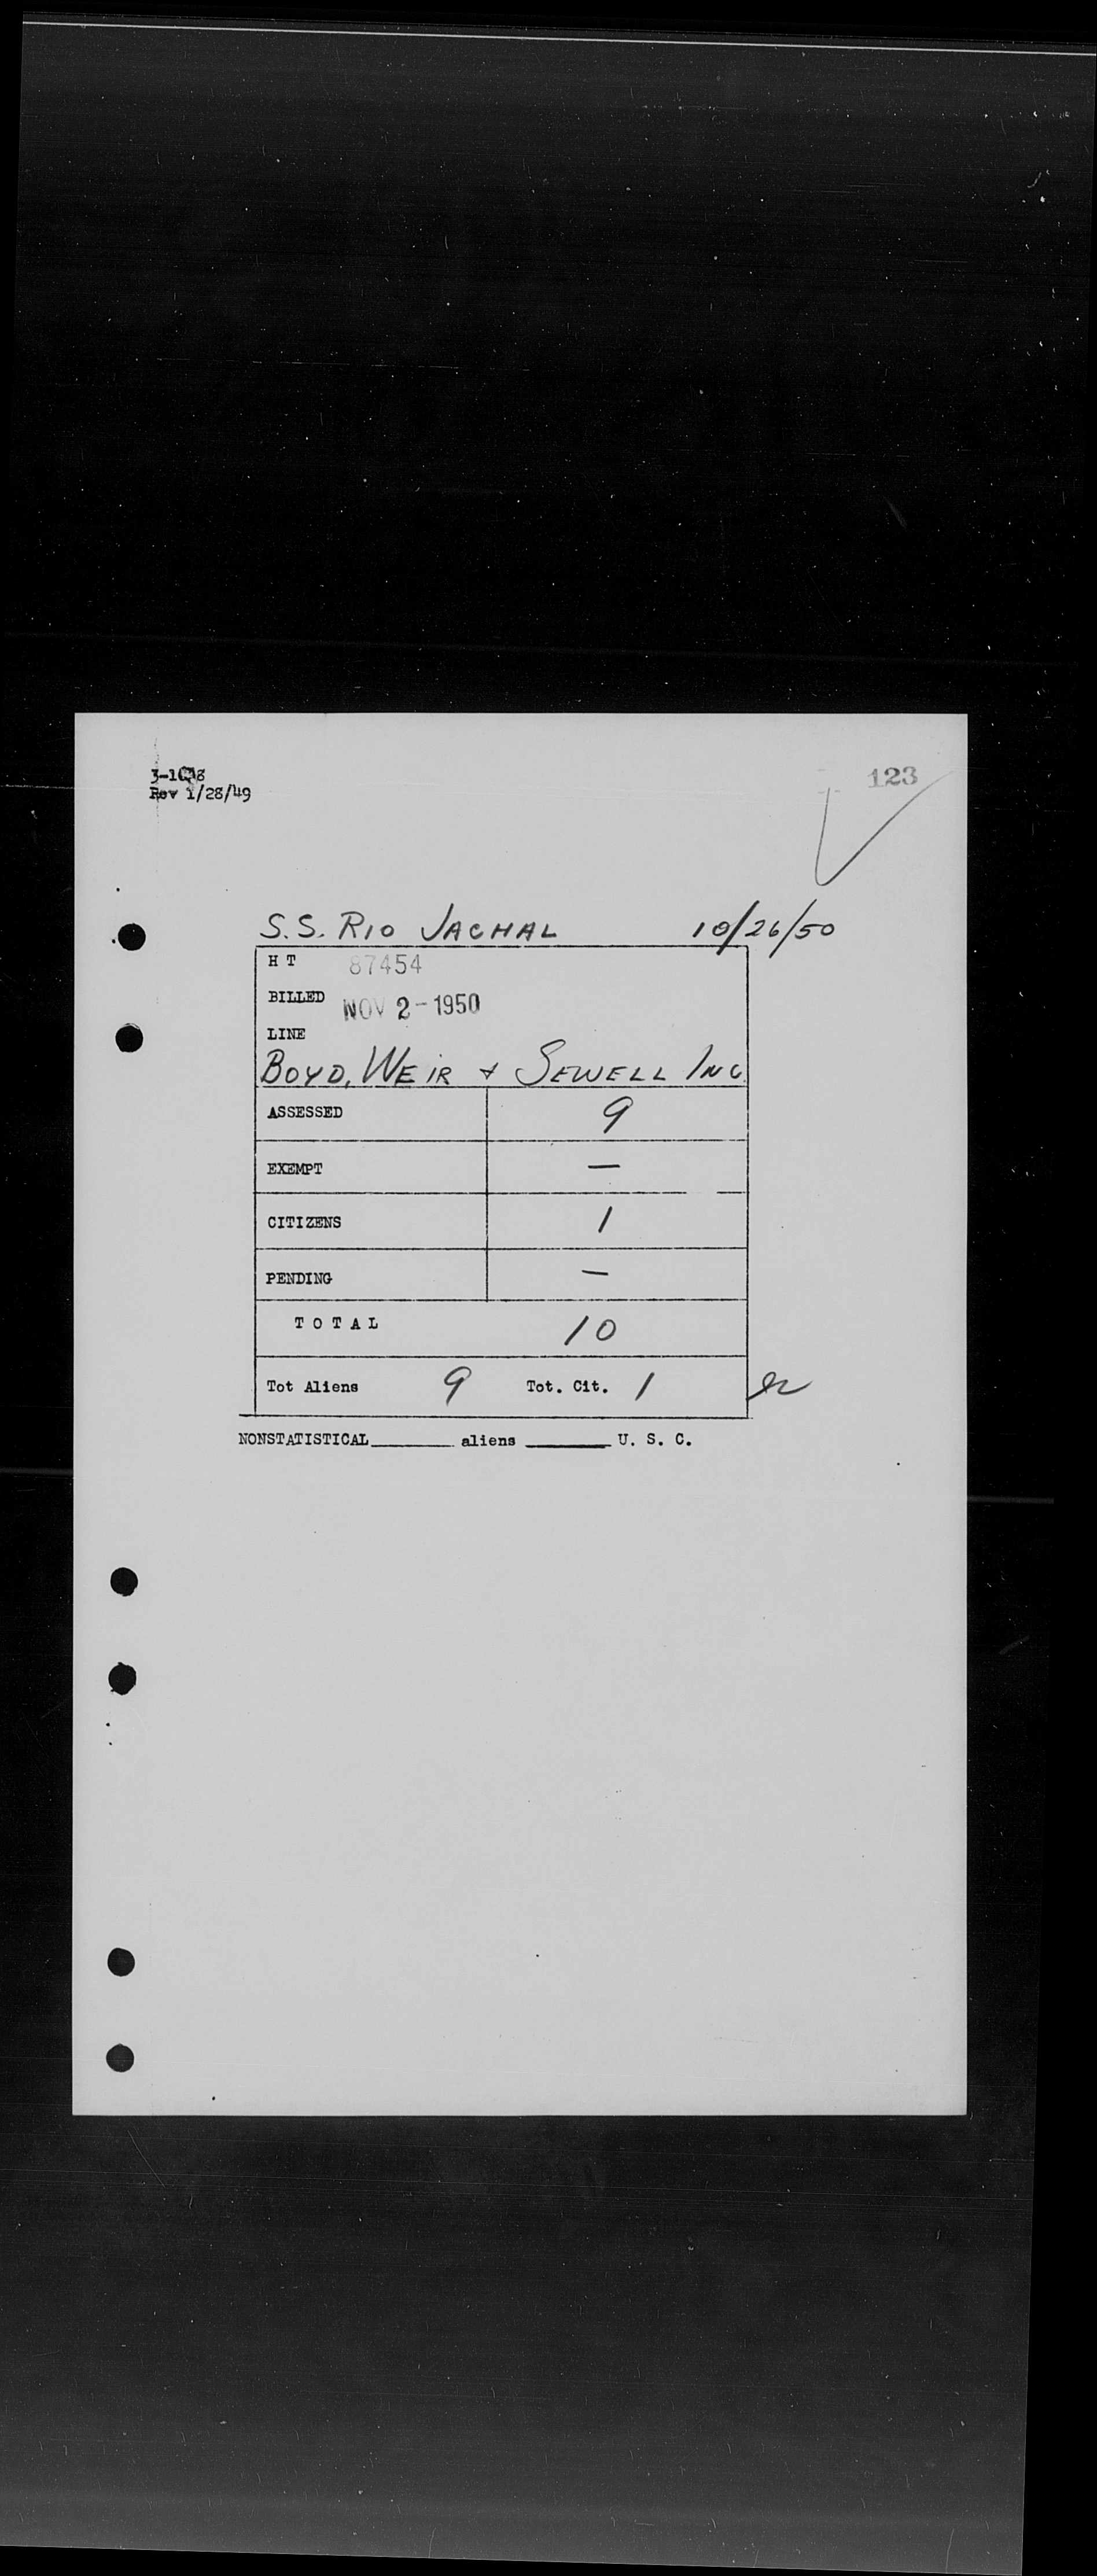 123
Rev 1/28/49
S.S. RIO JACHAL 10/26/50
H T 87454
BILLED NOV 2-1950
LINE
BOYD, WEIR & SEWELL INC
ASSESSED 9
EXEMPT —
CITIZENS 1
PENDING —
TOTAL 10
Tot Aliens 9 Tot. Cit. 1
NONSTATISTICAL______ aliens ______ U. S. C.